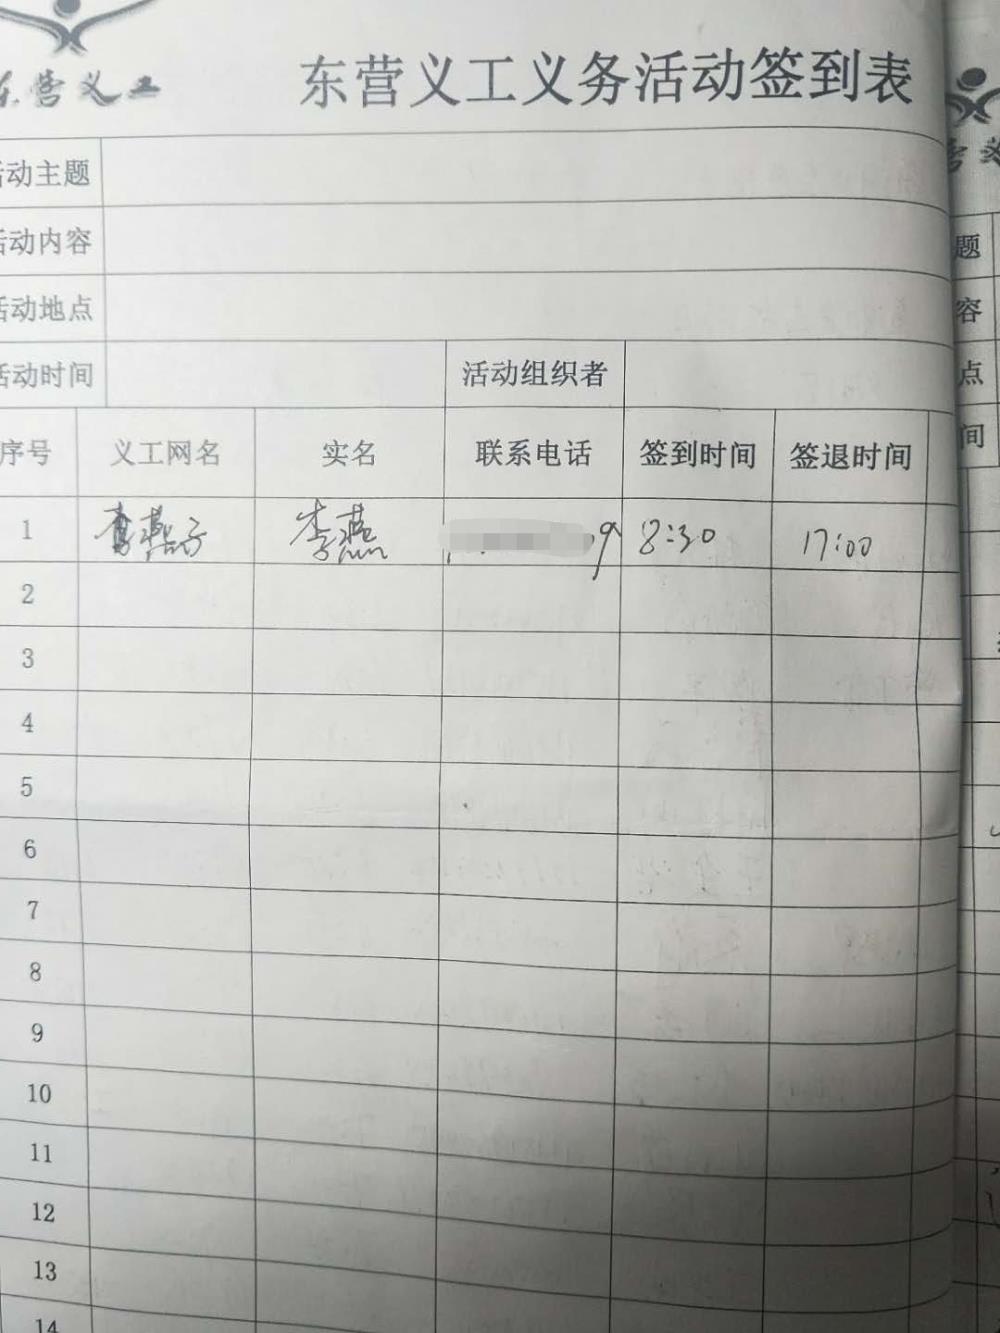 东营义工义务活动签到表
东营义工
活动主题
活动内容
活动地点
活动时间 活动组织者
序号 义工网名 实名 联系电话 签到时间 签退时间
1 燕子 李燕 9 8:30 17:00
2
3
4
5
6
7
8
9
10
11
12
13
14
营义
题
容
点
间